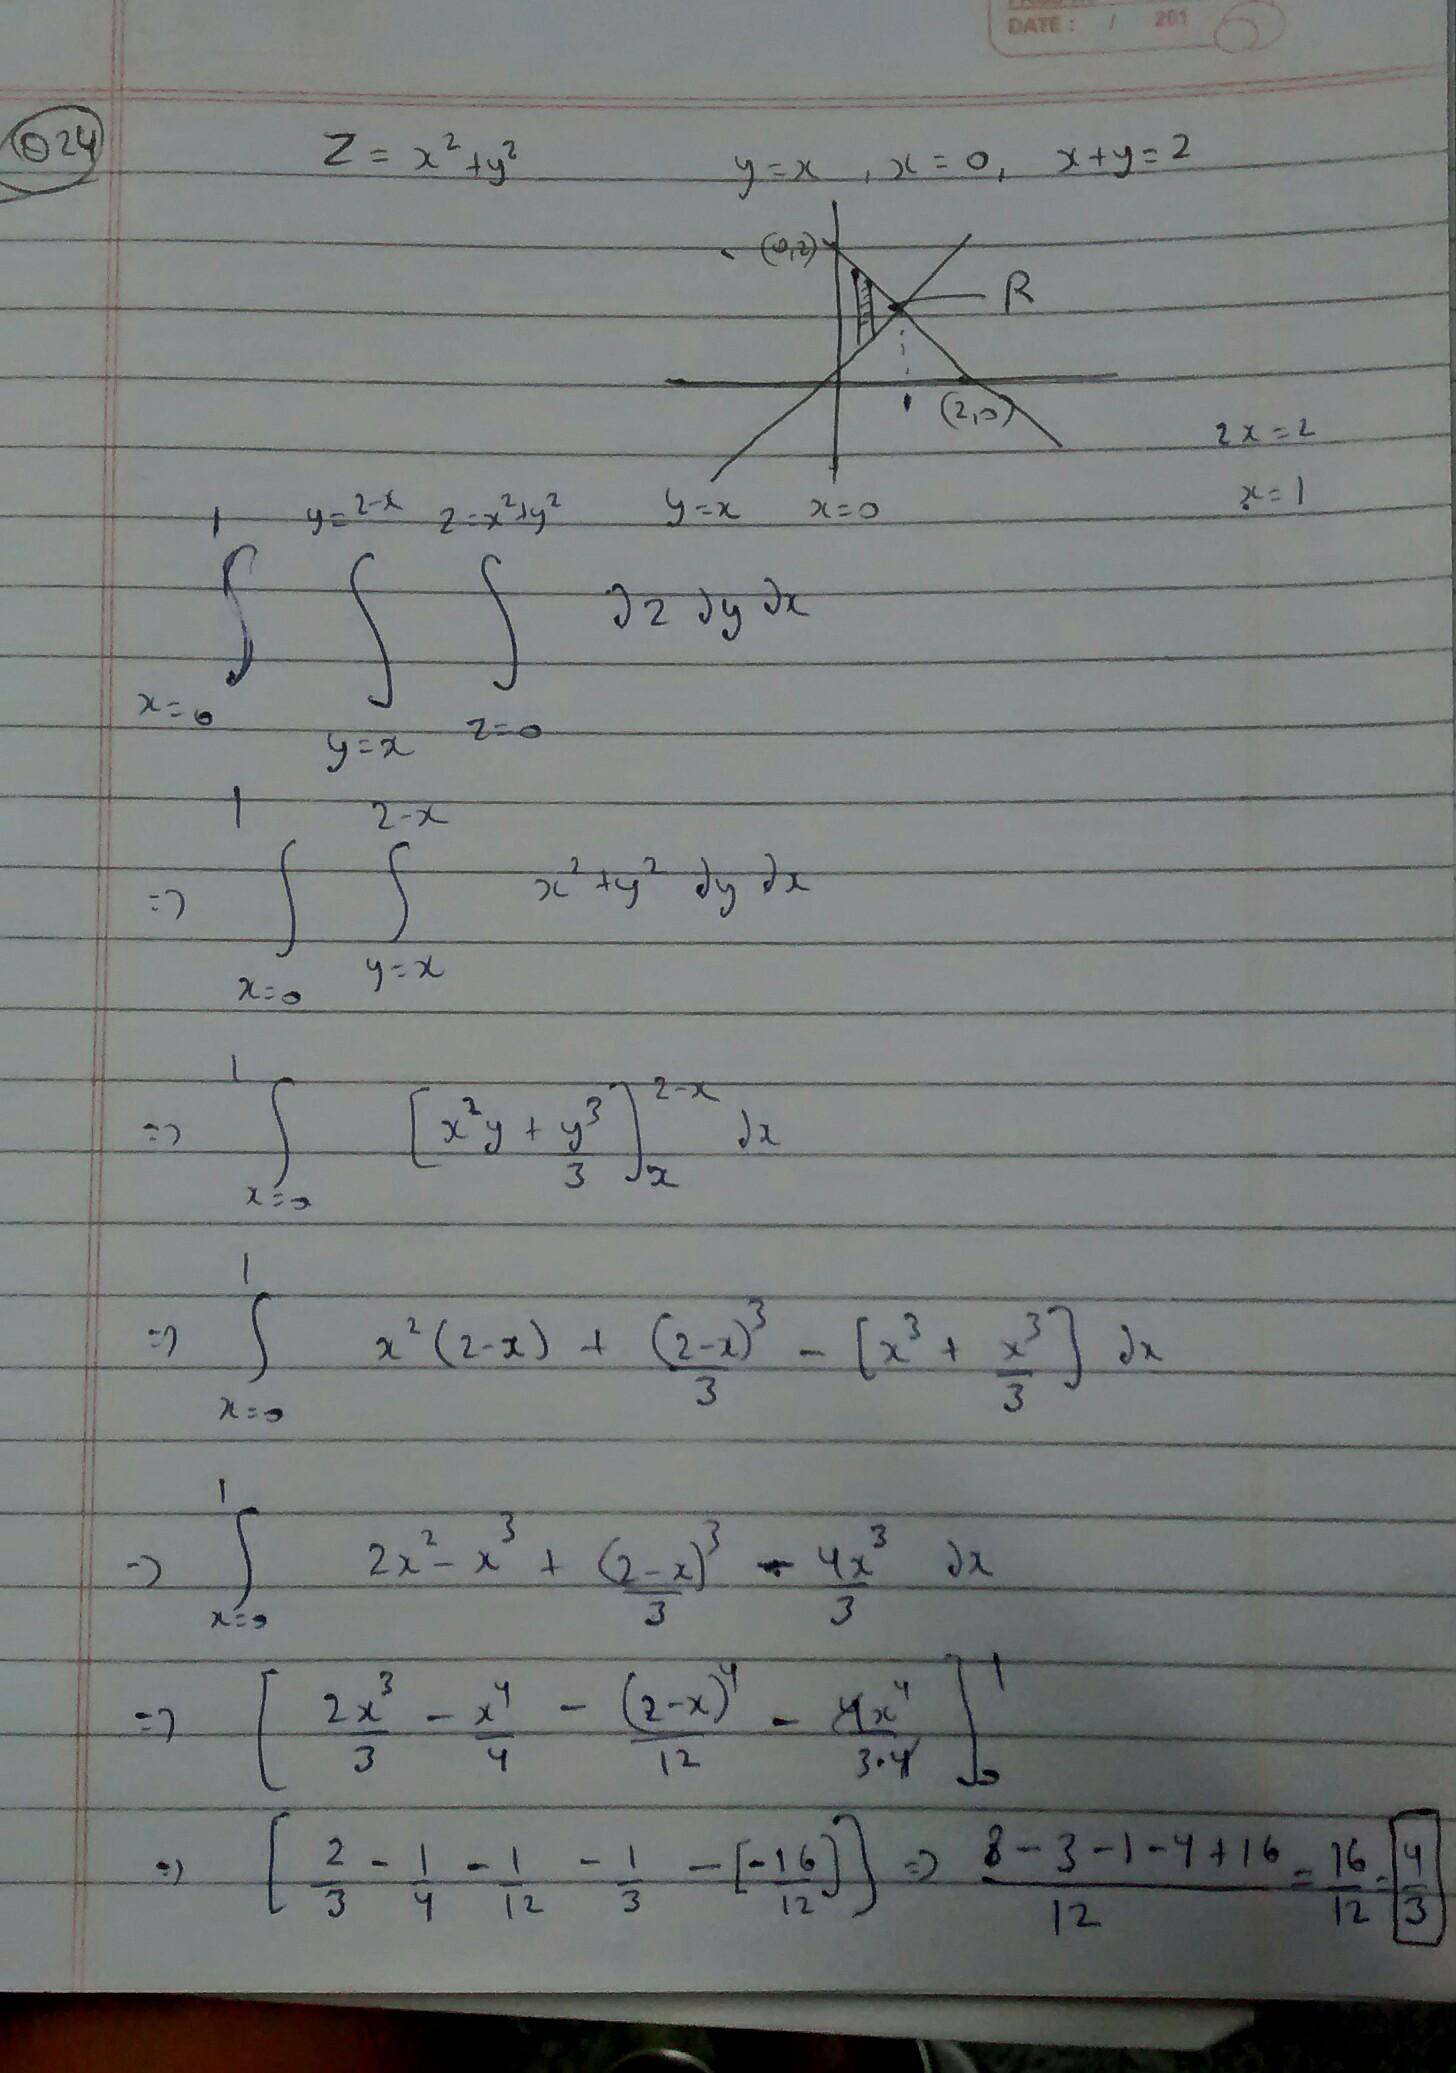 DATE : / 201
Q24
Z = x² + y² y = x , x = 0, x + y = 2
(0,2)
R
(2,0)
1
2x = 2
x = 1
y = x x = 0
1 y = 2-x z = x² + y²
∫ ∫ ∫ ∂z ∂y ∂x
x = 0 y = x z = 0
1 2-x
=> ∫ ∫ x² + y² ∂y ∂x
x = 0 y = x
1
=> ∫ [x²y + y³/3] 2-x x ∂x
x = 0
1
=> ∫ x²(2-x) + (2-x)³/3 - [x³ + x³/3] ∂x
x = 0
1
=> ∫ 2x² - x³ + (2-x)³/3 - 4x³/3 ∂x
x = 0
=> [2x³/3 - x⁴/4 - (2-x)⁴/12 - 4x⁴/3·4] 1 0
=> [2/3 - 1/4 - 1/12 - 1/3 - [-16/12]] => 8 - 3 - 1 - 4 + 16/12 = 16/12 = 4/3